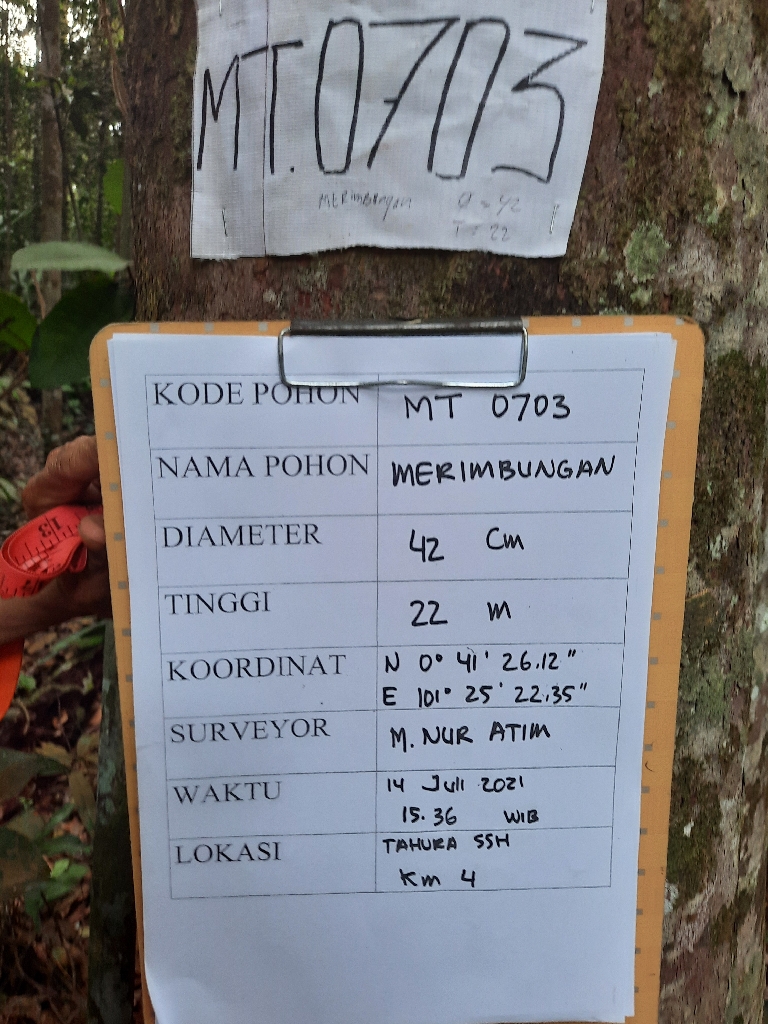 MT.0703
MERIMBUNGAN
D = 42
T = 22
KODE POHON MT 0703
NAMA POHON MERIMBUNGAN
DIAMETER 42 Cm
TINGGI 22 m
KOORDINAT N 0° 41' 26.12"
E 101° 25' 22.35"
SURVEYOR M. NUR ATIM
WAKTU 14 Juli 2021
15.36 WIB
LOKASI TAHURA SSH
Km 4
13